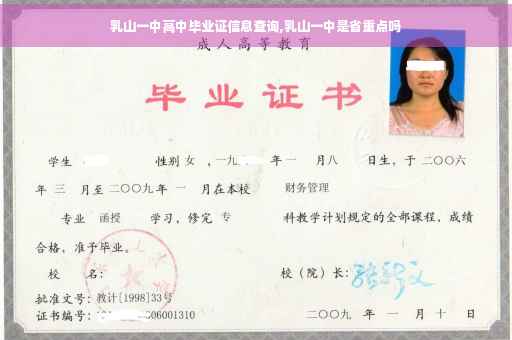 乳山一中高中毕业证信息查询,乳山一中是省重点吗
成人高等教育
毕业证书
学生 性别 女 ,一九 年一 月八 日生，于二〇〇六
年 三 月至二〇〇九年 一 月在本校 财务管理
专业 函授 学习，修完 专 科教学计划规定的全部课程，成绩
合格，准予毕业。
校 名： 校（院）长：
批准文号：教计[1998]33号
证书编号： 06001310 二〇〇九 年 一 月 十 日